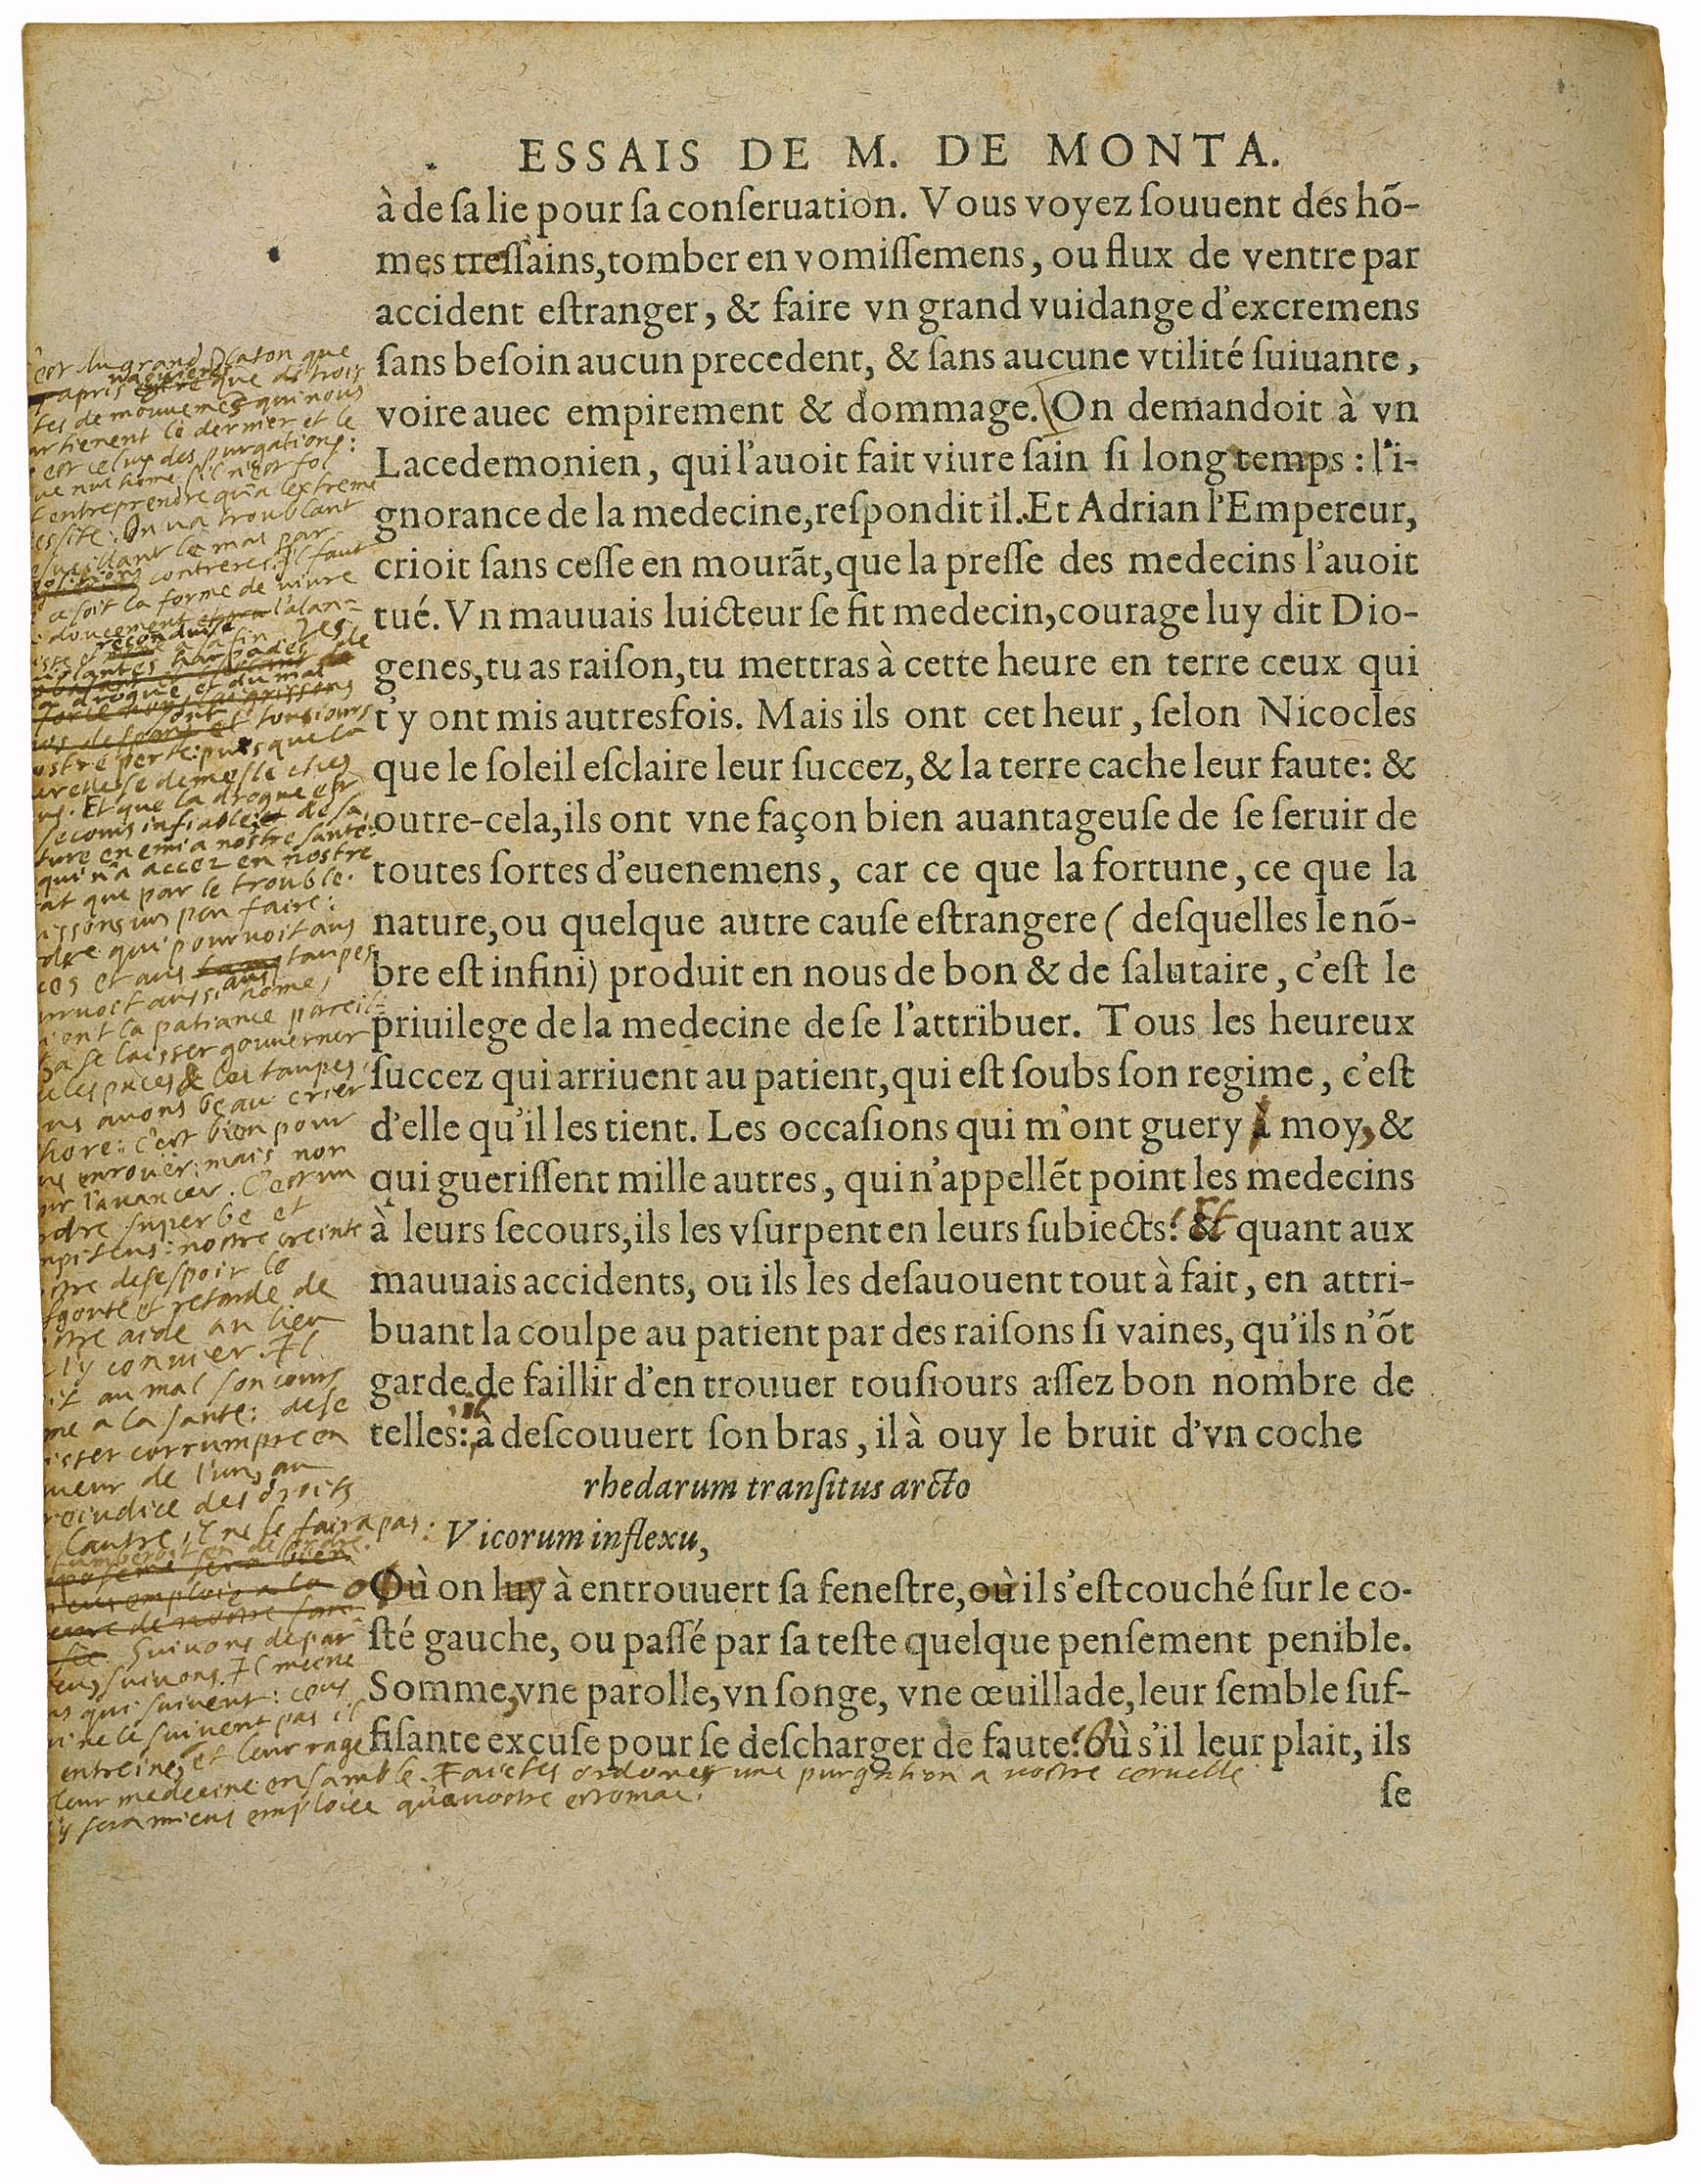 ESSAIS DE M. DE MONTA.
à de ſa lie pour ſa conſeruation. Vous voyez ſouuent des hõ-
mes treſſains, tomber en vomiſſemens, ou flux de ventre par
accident eſtranger, & faire vn grand vuidange d'excremens
ſans beſoin aucun precedent, & ſans aucune vtilité ſuiuante,
voire auec empirement & dommage. On demandoit à vn
Lacedemonien, qui l'auoit fait viure ſain ſi long temps: l'i-
gnorance de la medecine, reſpondit il. Et Adrian l'Empereur,
crioit ſans ceſſe en mourãt, que la preſſe des medecins l'auoit
tué. Vn mauuais luicteur ſe fit medecin, courage luy dit Dio-
genes, tu as raiſon, tu mettras à cette heure en terre ceux qui
t'y ont mis autresfois. Mais ils ont cet heur, ſelon Nicocles
que le ſoleil eſclaire leur ſuccez, & la terre cache leur faute: &
outre-cela, ils ont vne façon bien auantageuſe de ſe ſeruir de
toutes ſortes d'euenemens, car ce que la fortune, ce que la
nature, ou quelque autre cauſe eſtrangere (deſquelles le nõ-
bre eſt infini) produit en nous de bon & de ſalutaire, c'eſt le
priuilege de la medecine de ſe l'attribuer. Tous les heureux
ſuccez qui arriuent au patient, qui eſt ſoubs ſon regime, c'eſt
d'elle qu'il les tient. Les occaſions qui m'ont guery à moy, &
qui gueriſſent mille autres, qui n'appellẽt point les medecins
à leurs ſecours, ils les vſurpent en leurs ſubiects: Et quant aux
mauuais accidents, ou ils les deſauouent tout à fait, en attri-
buant la coulpe au patient par des raiſons ſi vaines, qu'ils n'õt
garde de faillir d'en trouuer touſiours aſſez bon nombre de
telles: il à deſcouuert ſon bras, il à ouy le bruit d'vn coche
rhedarum tranſitus arcto
Vicorum inflexu,
Où on luy à entrouuert ſa feneſtre, où il s'eſt couché ſur le co-
ſté gauche, ou paſſé par ſa teſte quelque penſement penible.
Somme, vne parolle, vn ſonge, vne œuillade, leur ſemble ſuf-
fiſante excuſe pour ſe deſcharger de faute: Où s'il leur plait, ils
ſe
du grand Platon que
apres que de trois
de mouuemēs qui nous
le dernier et le
est celuy des purgations:
nul home s'il n'est fol
entreprendre qu'a l'extreme
On va troublant
esueillant le mal par
contreres. Il faut
soit la forme de uiure
doucement l'alan-
reconduise a la fin. Les
harpades de
drogue et du mal
sont tousiours
perte: puis que la
se demesle ches
Et que la drogue est
secours infiable: de sa
enemi a nostre santé:
qui n'a accez en nostre
que par le trouble.
un peu faire:
qui pouruoit aus
et aus taupes
aussi aus homes
ont la patiance pareil-
a se laisser gouuerner
les puces & les taupes.
auons beau crier
bihore: c'est bien pour
enrouer: mais non
l'auancer. C'est un
superbe et
nostre creinte
desespoir le
et retarde de
aide au lieu
l'y conuier. Il
au mal son cours
a la santé: de se
corrumpre en
de l'un, au
des droits
l'autre, il ne le faira pas:
tumberoit en desordre.
Suiuons de par
suiuons. Il meine
qui suiuent: ceus
ne le suiuent pas il
entreine, et leur rage
leur medecine ensamble. Faictes ordoner une purgation a vostre ceruelle.
y sera mieus emploiee qu'a vostre estomac.